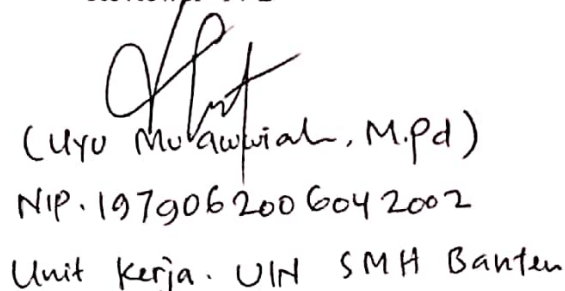 (Uyu Mu'awwiah, M.Pd)
NIP. 197906200604 2002
Unit Kerja. UIN SMH Banten